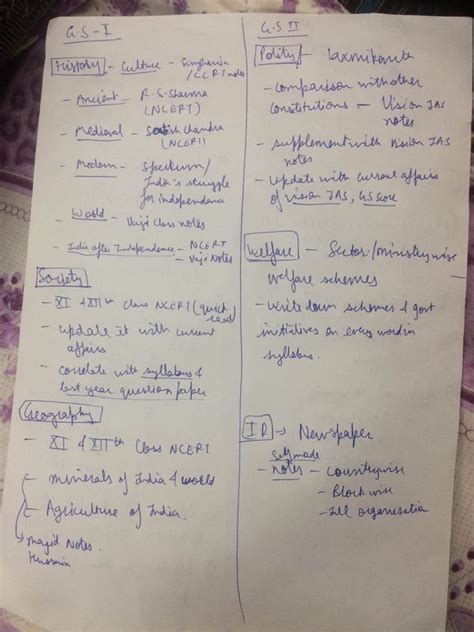 G.S-I
History - Culture - Singhania
/CCRT notes
- Ancient - R.S. Sharma
(NCERT)
- Medieval - Satish Chandra
(NCERT)
- Modern - Spectrum/
India's struggle
for independence
- World - Vajiji Class notes
- India after Independence - NCERT
- Vaji Notes
Society
- XI & XIIth class NCERT (quick
read)
- update it with current
affairs
- correlate with syllabus &
last year question paper
Geography
- XI & XIIth Class NCERT
- minerals of India & world
- Agriculture of India.
majid Notes.
Hussain
G.S II
Polity - Laxmikanta
- comparison with other
constitutions - Vision IAS
notes
- supplement with Vision IAS
notes
- update with current affairs
of vision IAS, GS score
Welfare - Sector/ministry wise
welfare schemes
- write down schemes & govt
initiatives on every word in
syllabus.
IR → Newspaper
Self made
- notes - Countrywise
- Block wise
- Intl organisation